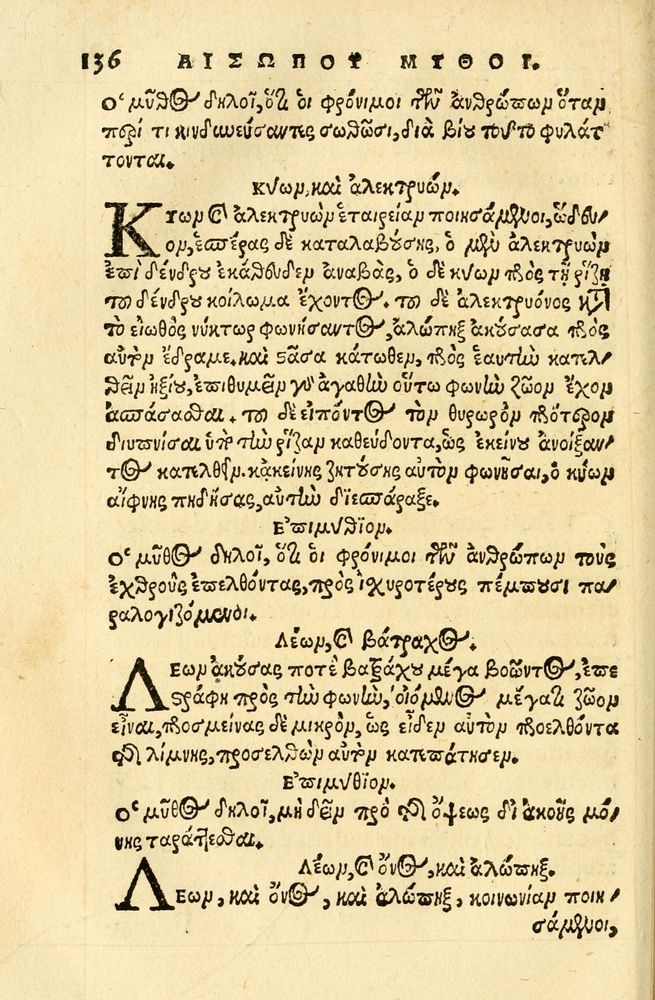 136 ΑΙΣΩΠΟΥ ΜΥΘΟΙ.
Ὁ μῦθος δηλοῖ, ὅτι οἱ φρόνιμοι τῶν ἀνθρώπων ὅταν
περί τι κινδυνεύσαντες σωθῶσι, διὰ βίου τοῦτο φυλάτ
τονται.
Κύων, καὶ ἀλεκτρυών.
ΚΥων καὶ ἀλεκτρυὼν ἑταιρείαν ποιησάμενοι, ὥδευ/
ον, ἑσπέρας δὲ καταλαβούσης, ὁ μὲν ἀλεκτρυὼν
ἐπὶ δένδρου ἐκάθευδεν ἀναβὰς, ὁ δὲ κύων πρὸς τῇ ῥίζῃ
τοῦ δένδρου κοίλωμα ἔχοντος. τοῦ δὲ ἀλεκτρυόνος κατὰ
τὸ εἰωθὸς νύκτωρ φωνήσαντος, ἀλώπηξ ἀκούσασα πρὸς
αὐτὸν ἔδραμε. καὶ στᾶσα κάτωθεν, πρὸς ἑαυτὴν κατελ/
θεῖν ἠξίου, ἐπιθυμεῖν γὰρ ἀγαθὴν οὕτω φωνὴν ζῶον ἔχον
ἀσπάσασθαι. τοῦ δὲ εἰπόντος τὸν θυρωρὸν πρότερον
διυπνίσαι ὑπὸ τὴν ῥίζαν καθεύδοντα, ὡς ἐκείνου ἀνοίξαν/
τος κατελθεῖν. κἀκείνης ζητούσης αὐτὸν φωνῆσαι, ὁ κύων
αἴφνης πηδήσας, αὐτὴν διεσπάραξε.
Ἐπιμύθιον.
Ὁ μῦθος δηλοῖ, ὅτι οἱ φρόνιμοι τῶν ἀνθρώπων τοὺς
ἐχθροὺς ἐπελθόντας, πρὸς ἰσχυροτέρους πέμπουσι πα/
ραλογιζόμενοι.
Λέων, καὶ βάτραχος.
ΛΕων ἀκούσας ποτὲ βατράχου μέγα βοῶντος, ἐπε
στράφη πρὸς τὴν φωνὴν, οἰόμενος μέγα τι ζῶον
εἶναι, προσμείνας δὲ μικρὸν, ὡς εἶδεν αὐτὸν προελθόντα
τῆς λίμνης, προσελθὼν αὐτὸν κατεπάτησεν.
Ἐπιμύθιον.
Ὁ μῦθος δηλοῖ, μὴ δεῖν πρὸ τῆς ὄψεως δι' ἀκοῆς μό/
νης ταράττεσθαι.
Λέων, καὶ ὄνος, καὶ ἀλώπηξ.
ΛΕων, καὶ ὄνος, καὶ ἀλώπηξ, κοινωνίαν ποιη/
σάμενοι,